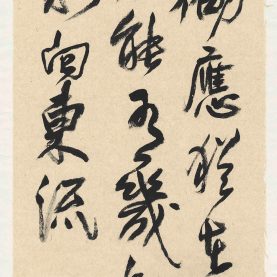 應猶在
能有幾
向東流